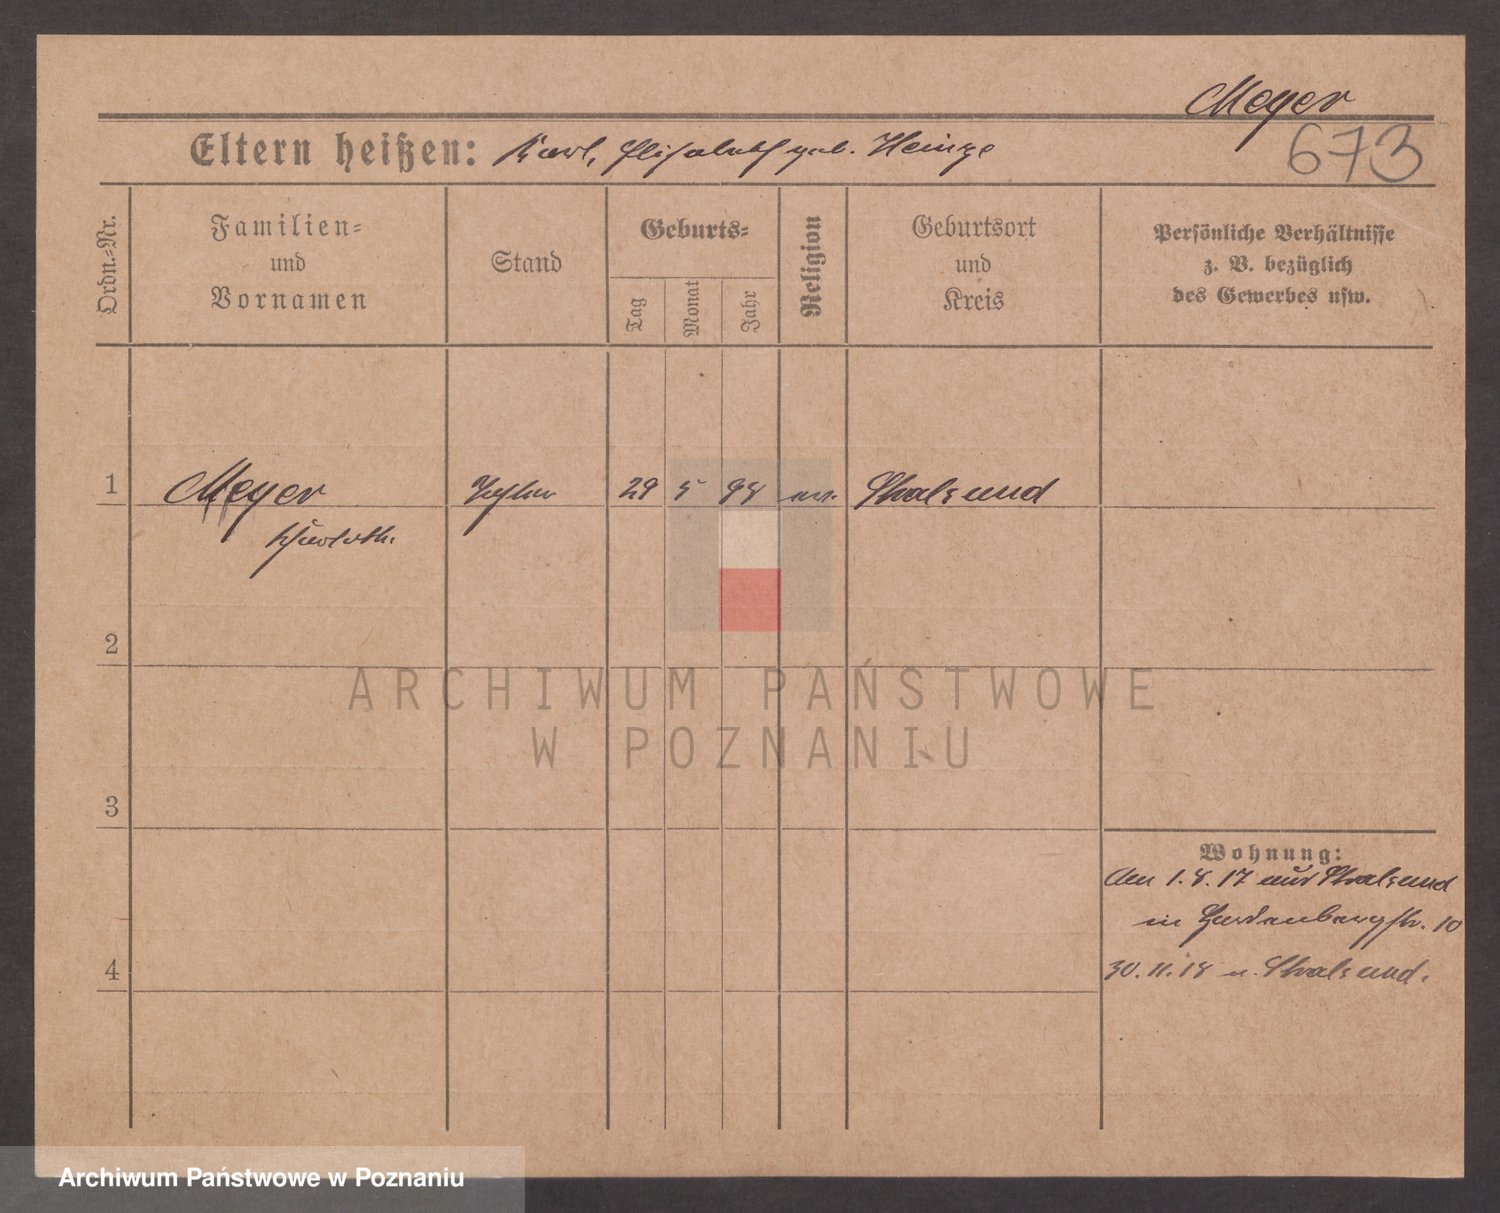 Meyer
673
Eltern heißen: Karl, Elisabeth geb. Heinze
Ordn.-Nr.
Familien-
und
Vornamen
Stand
Geburts-
Tag
Monat
Jahr
Religion
Geburtsort
und
Kreis
Persönliche Verhältnisse
z. B. bezüglich
des Gewerbes usw.
1 Meyer 29 5 98 ev. Stralsund
2
3
4
Wohnung:
den 1.8.17 aus Stralsund
in Hardenbergstr. 10
30.11.18 n. Stralsund.
ARCHIWUM PAŃSTWOWE
W POZNANIU
Archiwum Państwowe w Poznaniu